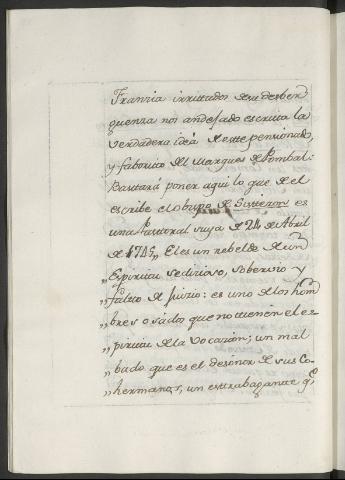 Franzia irritados de su desber
guenza nos an dejado escrita la
verdadera idéa de este pensionado,
y faborito del Marques de Pombal:
Bastará poner aqui lo que de el
escribe el obispo de Sisteron es
una Pastoral suya de 24 de Abril
de 1745,, El es un rebelde de un
,, Espiritu sedizioso, sobervio y
,, falto de juizio: es uno de los hom
,, bres osados que no tienen el es-
,, piritu de la vocazion; un mal
,, bado que es el desonor de sus Co-
,, hermanos, un estrabagante q.e